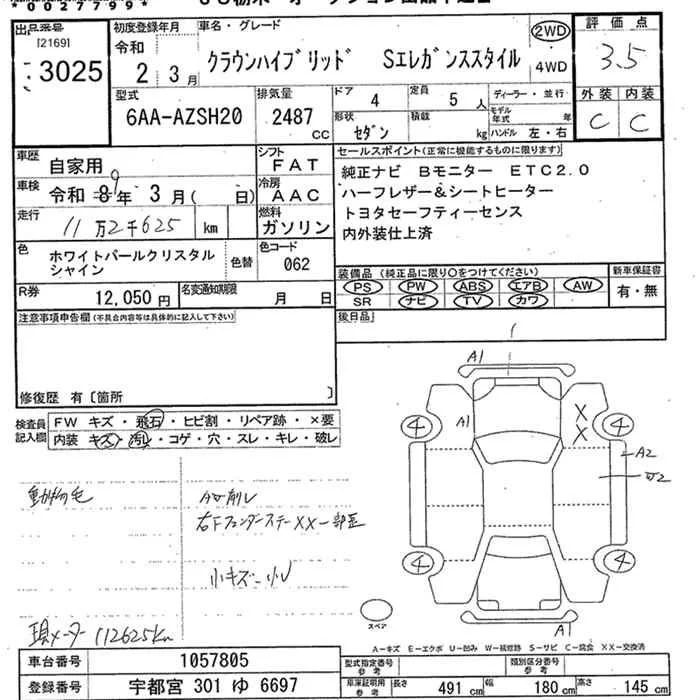 *00277799*
出品番号
[2169]
3025
初度登録年月
令和
2 3月
車名・グレード
クラウンハイブリッド Sエレガンススタイル
2WD
4WD
評価点
3.5
外装 内装
C C
型式
6AA-AZSH20
排気量
2487 cc
ドア 4
定員 5 人
形状 セダン
積載 kg
ディーラー・並行
モデル年式 年
ハンドル 左・右
車歴 自家用
車検 令和 8 9年 3月( 日)
走行 11万2千625 km
色 ホワイトパールクリスタルシャイン
色替
シフト FAT
冷房 AAC
燃料 ガソリン
色コード 062
R券 12,050円
名変通知期限 月 日
セールスポイント(正常に機能するものに限ります)
純正ナビ Bモニター ETC2.0
ハーフレザー&シートヒーター
トヨタセーフティーセンス
内外装仕上済
装備品(純正品に限り○をつけてください)
PS PW ABS エアB AW
SR ナビ TV カワ
新車保証書
有・無
後日品
注意事項申告欄(不具合内容等は具体的に記入して下さい)
修復歴 有〔箇所 〕
検査員記入欄
FW キズ・飛石・ヒビ割・リペア跡・×要
内装 キズ・汚レ・コゲ・穴・スレ・キレ・破レ
動物の毛
右Fフェンダーステー××一部歪
小キズ-小U
現メーター112625Km
A1
A1
X
X
4
4
A2
4
4
A1
スペア
A-キズ E-エクボ U-凹み W-補修跡 S-サビ C-腐食 XX-交換済
車台番号 1057805
登録番号 宇都宮 301 ゆ 6697
型式指定番号 参考
類別区分番号 参考
車庫証明用 参考
長さ 491cm
幅 180cm
高さ 145cm